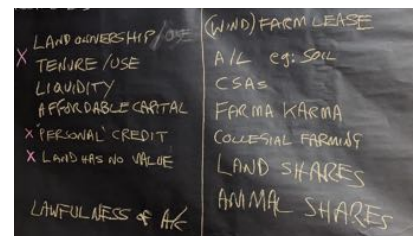 LAND OWNERSHIP/USE
X TENURE/USE
LIQUIDITY
AFFORDABLE CAPITAL
X 'PERSONAL' CREDIT
X LAND HAS NO VALUE
LAWFULNESS OF A/C
(WIND) FARM LEASE
A/L eg: SOIL
CSAs
FARMA KARMA
COLLEGIAL FARMING
LAND SHARES
ANIMAL SHARES